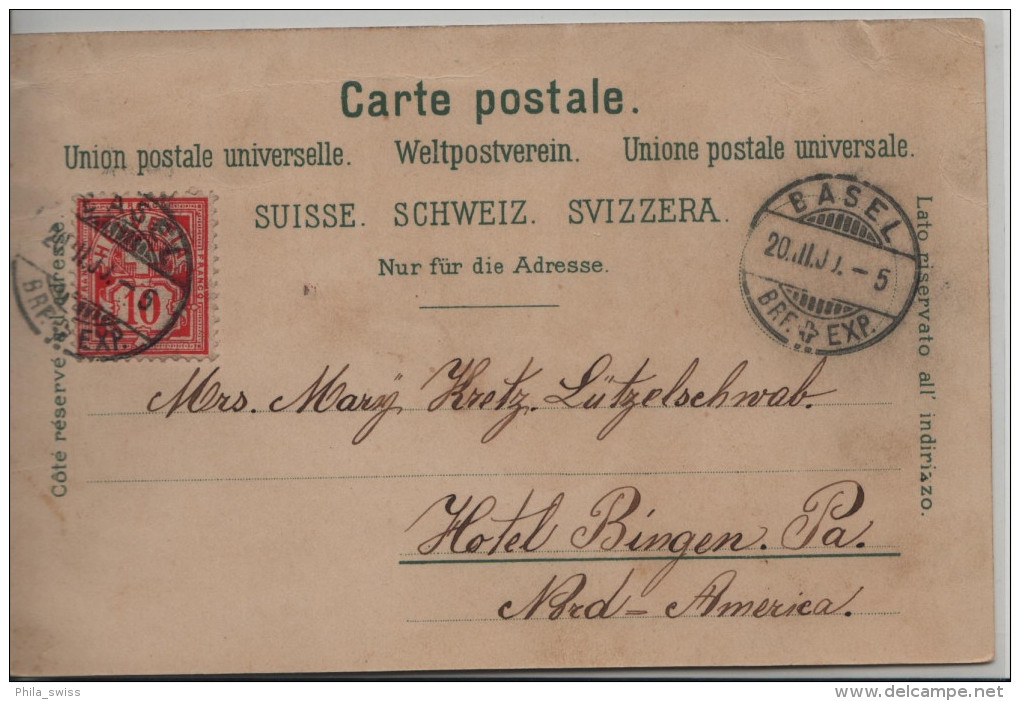 Carte postale.
Union postale universelle. Weltpostverein. Unione postale universale.
SUISSE. SCHWEIZ. SVIZZERA.
Nur für die Adresse.
BASEL
20.III.
– 5
BRF. EXP.
BASEL
– 5
BRF. EXP.
FRANCO
10
Côté réservé à l'adresse.
Lato riservato all' indirizzo.
Mrs. Mary Kretz. Lützelschwab.
Hotel Bingen. Pa.
Nord-America.
Phila_swiss
www.delcampe.net